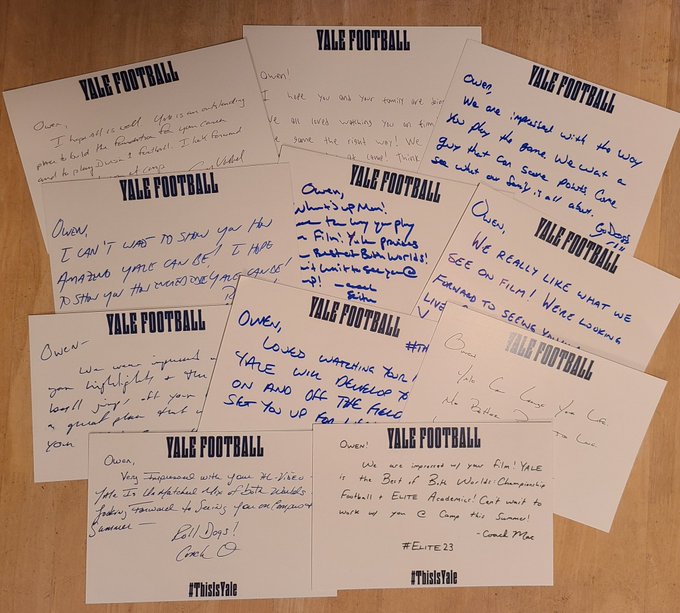 YALE FOOTBALL
Owen,
I hope all is well. Yale is an outstanding
place to build the foundation for your career
and to play Division 1 football. I look forward
YALE FOOTBALL
Owen!
I hope you and your family are doing
all loved watching you on film
the right way! We
Think
YALE FOOTBALL
Owen,
We are impressed with the way
you play the game. We want a
guy that can score points. Come
see what our family is all about.
Go Dogs
YALE FOOTBALL
OWEN,
I CAN'T WAIT TO SHOW YOU HOW
AMAZING YALE CAN BE! I HOPE
TO SHOW YOU HOW INCREDIBLE YALE CAN BE!
YALE FOOTBALL
Owen!
What's up Man!
the way you play
Film! Yale provides
Best of Both Worlds!
wait to see you @
YALE FOOTBALL
OWEN,
WE REALLY LIKE WHAT WE
SEE ON FILM! WE'RE LOOKING
FORWARD TO SEEING YOU
LIVE
YALE FOOTBALL
Owen-
We were impressed
your highlights & the
off your
a great place that
your
YALE FOOTBALL
OWEN,
LOVED WATCHING YOUR
YALE WILL DEVELOP
ON AND OFF THE FIELD
SET YOU UP FOR
YALE FOOTBALL
Owen
Yale Can Change Your Life
No Better
YALE FOOTBALL
Owen,
Very Impressed with your HL-Video-
Yale Is the Matched Mix of both Worlds
Looking Forward to Seeing you on Campus
Summer-
Roll Dogs!
Coach O
#ThisIsYale
YALE FOOTBALL
OWEN!
WE ARE IMPRESSED W/ YOUR FILM! YALE
IS THE BEST OF BOTH WORLDS-CHAMPIONSHIP
FOOTBALL + ELITE ACADEMICS! CAN'T WAIT TO
WORK W/ YOU @ CAMP THIS SUMMER!
-COACH MAC
#ELITE23
#ThisIsYale